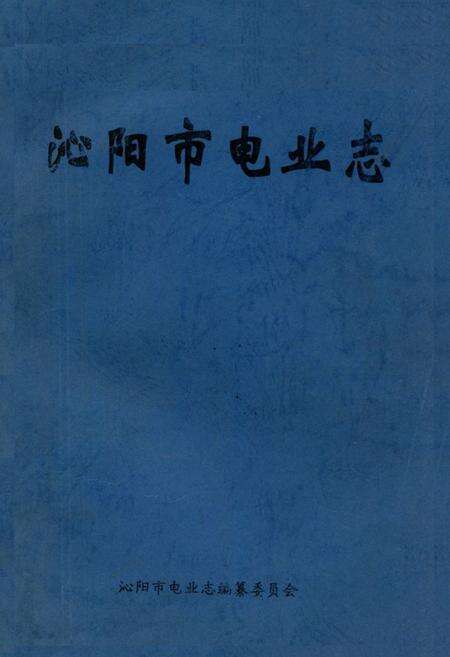 沁阳市电业志
沁阳市电业志编纂委员会